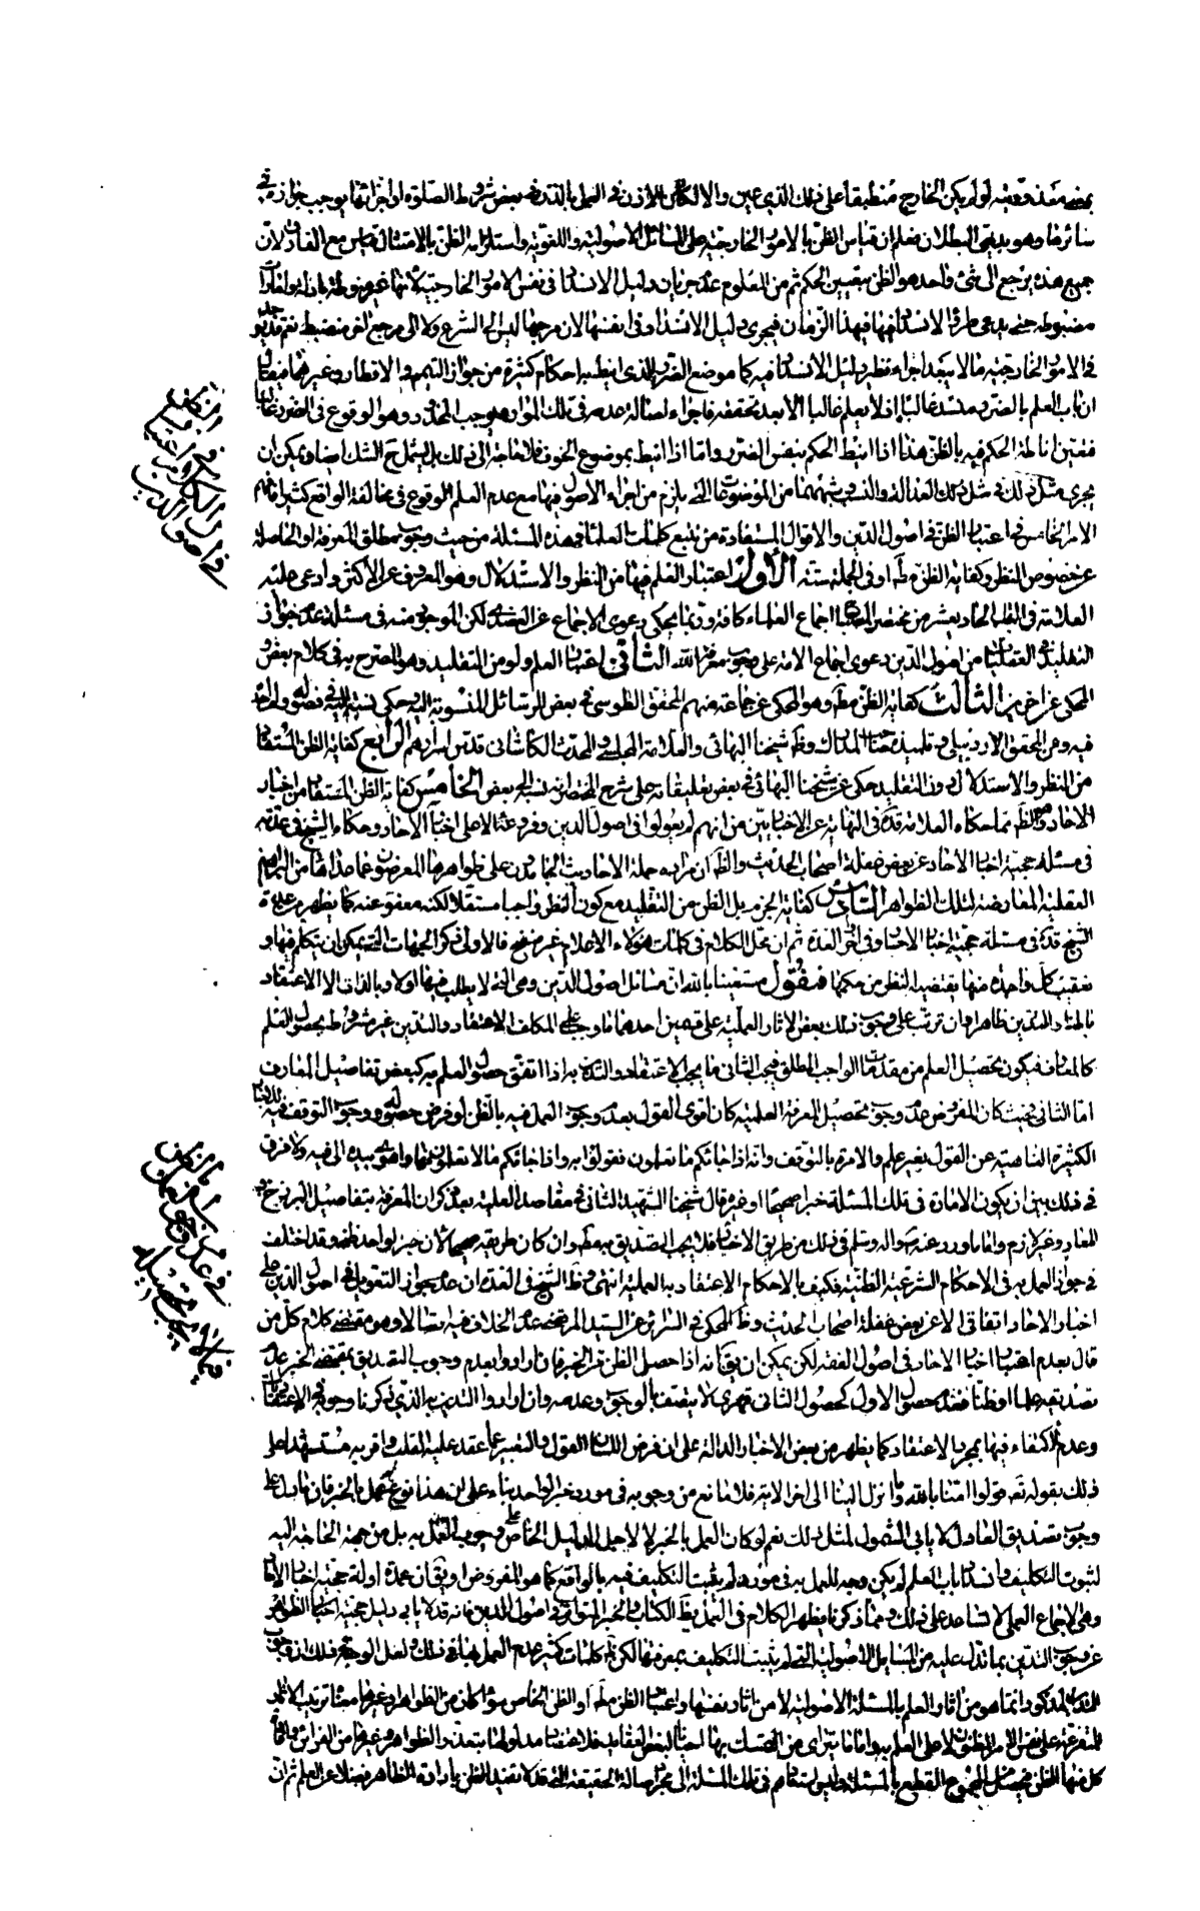 بعضه معذوقيته لو لم يكن الخارج منطبقا على ذلك الذي عين والا لكان الاذن في العمل بالظن في بعض شروط الصلوة او اجزائها يوجب جوازه في
سائرها وهو بديهي البطلان فعلم ان قياس الظن بالامور الخارجية على المسائل الاصولية واللغوية واستلزامه الظن بالامتثال قياس مع الفارق لان
جميع هذه يرجع الى شيء واحد هو الظن بتعيين الحكم ثم من المعلوم عدم جريان دليل الانسداد في نفس الامور الخارجية لانها غير منوطة بادلة وامارات
مضبوطة حتى يدعى طرو الانسداد فيها في هذا الزمان فيجري دليل الانسداد في انفسها لان مرجعها ليس الى الشرع ولا الى مرجع اخر منضبط نعم قد يوجد
في الامور الخارجية ما لا يبعد اجراء نظير دليل الانسداد فيه كما في موضع الضرر الذي انيط به احكام كثيرة من جواز التيمم والافطار وغيرهما فيقال
ان باب العلم بالضرر منسد غالبا اذ لا يعلم غالبا الا بعد تحققه فاجراء اصالة عدمه في تلك الموارد يوجب المحذور وهو الوقوع في الضرر غالبا
فتعين اناطة الحكم فيه بالظن هذا اذا انيط الحكم بنفس الضرر واما اذا انيط بموضوع الخوف فلا حاجة الى ذلك بل يشمل ح الشك ايضا ويمكن ان
يجري مثل ذلك في مثل ذلك العدالة والنسب وشبههما من الموضوعات التي يلزم من اجراء الاصول فيها مع عدم العلم الوقوع في مخالفة الواقع كثيرا فافهم
الامر الخامس في اعتبار الظن في اصول الدين والاقوال المستفادة من تتبع كلمات العلماء في هذه المسئلة من حيث وجوب مطلق المعرفة او الحاصلة
عن خصوص النظر وكفاية الظن مطلقا او في الجملة ستة الأول اعتبار العلم فيها من النظر والاستدلال وهو المعروف عن الاكثر وادعى عليه
العلامة في الباب الحاديعشر من مختصر المصباح اجماع العلماء كافة وربما يحكى دعوى الاجماع عن العضدي لكن الموجود منه في مسئلة عدم جواز
التقليد في العقليات من اصول الدين دعوى اجماع الامة على وجوب معرفة الله الثاني اعتبار العلم ولو من التقليد وهو المصرح به في كلام بعض و
المحكى عن اخرين الثالث كفاية الظن مطلقا وهو المحكى عن جماعة منهم المحقق الطوسي في بعض الرسائل المنسوبة اليه وحكى نسبته اليه في فصوله ولم اجده
فيه وعن المحقق الاردبيلي وتلميذه صاحب المدارك وظاهر شيخنا البهائي والعلامة المجلسي والمحدث الكاشاني قدس اسرارهم الرابع كفاية الظن المستفاد
من النظر والاستدلال دون التقليد حكى عن شيخنا البهائي في بعض تعليقاته على شرح المختصر انه نسبه الى بعض الخامس كفاية الظن المستفاد من اخبار
الاحاد وهو الظاهر مما حكاه العلامة قده في النهاية عن الاخباريين من انهم لم يعولوا في اصول الدين وفروعه الا على اخبار الاحاد وحكاه الشيخ في عدته
في مسئلة حجية اخبار الاحاد عن بعض غفلة اصحاب الحديث والظاهر ان مراده حملة الاحاديث الجامدون على ظواهرها المعرضون عما عداها من البراهين
العقلية المعارضة لتلك الظواهر السادس كفاية الجزم بل الظن من التقليد مع كون النظر واجبا مستقلا لكنه معفو عنه كما يظهر من عدة
الشيخ قده في مسئلة حجية اخبار الاحاد وفي اخر العدة ثم ان محل الكلام في كلمات هؤلاء الاعلام غير منقح فالاولى ذكر الجهات التي يمكن ان يتكلم فيها و
تعقيب كل واحدة منها بما يقتضيه النظر من حكمها فنقول مستعينا بالله ان مسائل اصول الدين وهي التي لا يطلب فيها اولا وبالذات الا الاعتقاد
باطنا والتدين ظاهرا وان ترتب على وجوب ذلك بعض الاثار العملية على قسمين احدهما ما وجب على المكلف الاعتقاد والتدين غير مشروط بحصول العلم
كالمعارف فيكون تحصيل العلم من مقدمات الواجب المطلق فيجب الثاني ما يجب الاعتقاد والتدين به اذا اتفق حصول العلم به كبعض تفاصيل المعارف
اما الثاني فحيث كان المفروض عدم وجوب تحصيل المعرفة العلمية كان الاقوى القول بعدم وجوب العمل فيه بالظن لو فرض حصوله ووجوب التوقف فيه للاخبار
الكثيرة الناهية عن القول بغير علم والامرة بالتوقف وانه اذا جائكم ما تعلمون فقولوا به واذا جائكم ما لا تعلمون فها واهوى بيده الى فيه ولا فرق
في ذلك بين ان يكون الامارة في تلك المسئلة خبرا صحيحا او غيره قال شيخنا الشهيد الثاني في مقاصد العلية بعد ذكر ان المعرفة بتفاصيل البرزخ و
المعاد غير لازم واما ما ورد عنه صلى الله عليه واله وسلم في ذلك من طريق الاحاد فلا يجب التصديق به مطلقا وان كان طريقه صحيحا لان خبر الواحد ظني وقد اختلف
في جواز العمل به في الاحكام الشرعية الظنية فكيف بالاحكام الاعتقادية العلمية انتهى وظاهر الشيخ في العدة ان عدم جواز التعويل في اصول الدين على
اخبار الاحاد اتفاقي الا عن بعض غفلة اصحاب الحديث وظاهر المحكى في السرائر عن السيد المرتضى عدم الخلاف فيه اصلا وهو مقتضى كلام كل من
قال بعدم اعتبار اخبار الاحاد في اصول الفقه لكن يمكن ان يقال انه اذا حصل الظن من الخبر فان ارادوا بعدم وجوب التصديق بمقتضى الخبر عدم
تصديقه علما او ظنا فعدم حصول الاول كحصول الثاني قهري لا يتصف بالوجوب وعدمه وان ارادوا التدين به الذي ذكرنا وجوبه في الاعتقاديات
وعدم الاكتفاء فيها بمجرد الاعتقاد كما يظهر من بعض الاخبار الدالة على ان فرض اللسان القول والتعبير عما عقد عليه القلب واقر به مستشهدا على
ذلك بقوله تعالى قولوا امنا بالله وما انزل الينا الى اخر الاية فلا مانع من وجوبه في مورد خبر الواحد بناء على ان هذا نوع عمل بالخبر فان ما دل على
وجوب تصديق العادل لا يابى الشمول لمثل ذلك نعم لو كان العمل بالخبر لا لاجل الدليل الخاص على وجوب العمل به بل من جهة الحاجة اليه
لثبوت التكليف وانسداد باب العلم لم يكن وجه للعمل به في مورد لم يثبت التكليف فيه بالواقع كما هو المفروض او يقال ان عمدة ادلة حجية اخبار الاحاد
وهي الاجماع العملي لا تساعد على ذلك ومما ذكرنا يظهر الكلام في العمل بظاهر الكتاب والخبر المتواتر في اصول الدين فانه قد لا يابى دليل حجية الظواهر
عن وجوب التدين بما تدل عليه من المسائل الاصولية التي لم يثبت التكليف بمعرفتها لكن ظاهر كلمات كثير عدم العمل بها في ذلك ولعل الوجه في ذلك ان وجوب
التدين المذكور انما هو من اثار العلم بالمسئلة الاصولية لا من اثار نفسها واعتبار الظن مطلقا او الظن الخاص سواء كان من الظواهر او غيرها معناه ترتيب الاثار
المتفرعة على نفس الامر المظنون لا على العلم به واما ما يتراى من التمسك بها احيانا لبعض العقائد فلاعتضاد مدلولها بتعدد الظواهر وغيرها من القرائن وافادة
كل منها الظن فيحصل من المجموع القطع بالمسئلة وليس استنادهم في تلك المسئلة الى مجرد اصالة الحقيقة التي قد لا تفيد الظن بارادة الظاهر فضلا عن العلم ثم ان